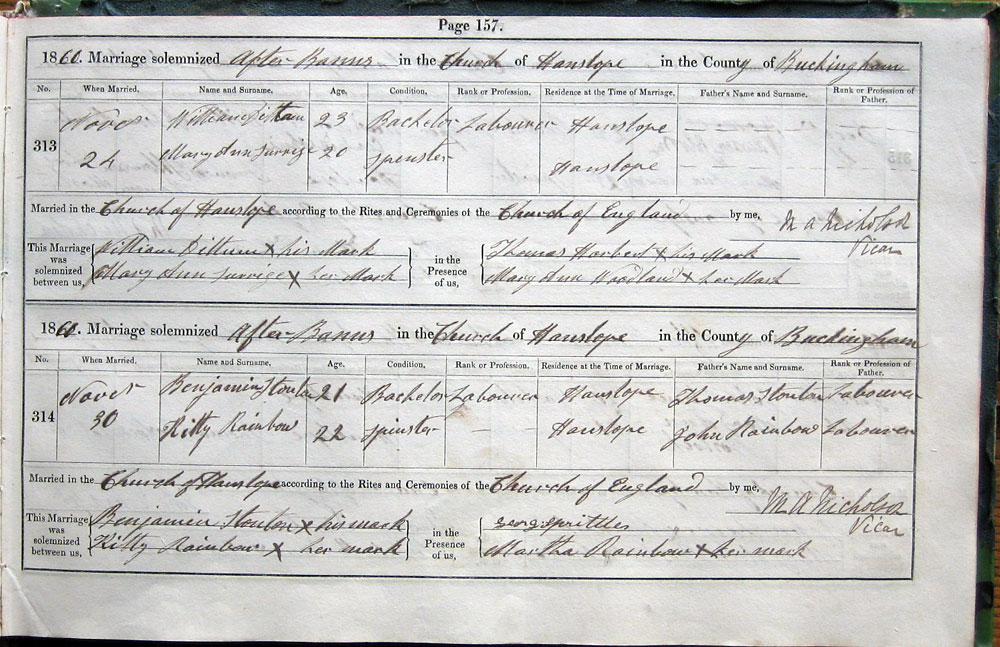 Page 157.
1860. Marriage solemnized After Banns in the Church of Hanslope in the County of Buckingham
No. When Married. Name and Surname. Age. Condition. Rank or Profession. Residence at the Time of Marriage. Father's Name and Surname. Rank or Profession of Father.
313 Novr William Pittam 23 Bachelor Labourer Hanslope
24 Mary Ann Surrige 20 Spinster Hanslope
Married in the Church of Hanslope according to the Rites and Ceremonies of the Church of England by me, M A Nicholas
Vicar
This Marriage was solemnized between us, William Pittum X his Mark in the Presence of us, Thomas Horbert X his Mark
Mary Ann Surrige X her Mark Mary Ann Woodland X her Mark
1860. Marriage solemnized After Banns in the Church of Hanslope in the County of Buckingham
No. When Married. Name and Surname. Age. Condition. Rank or Profession. Residence at the Time of Marriage. Father's Name and Surname. Rank or Profession of Father.
314 Novr Benjamin Stonton 21 Bachelor Labourer Hanslope Thomas Stonton Labourer
30 Kitty Rainbow 22 Spinster Hanslope John Rainbow Labourer
Married in the Church of Hanslope according to the Rites and Ceremonies of the Church of England by me, M A Nicholas
Vicar
This Marriage was solemnized between us, Benjamin Stonton X his mark in the Presence of us, georg sprittles
Kitty Rainbow X her mark Martha Rainbow X her mark